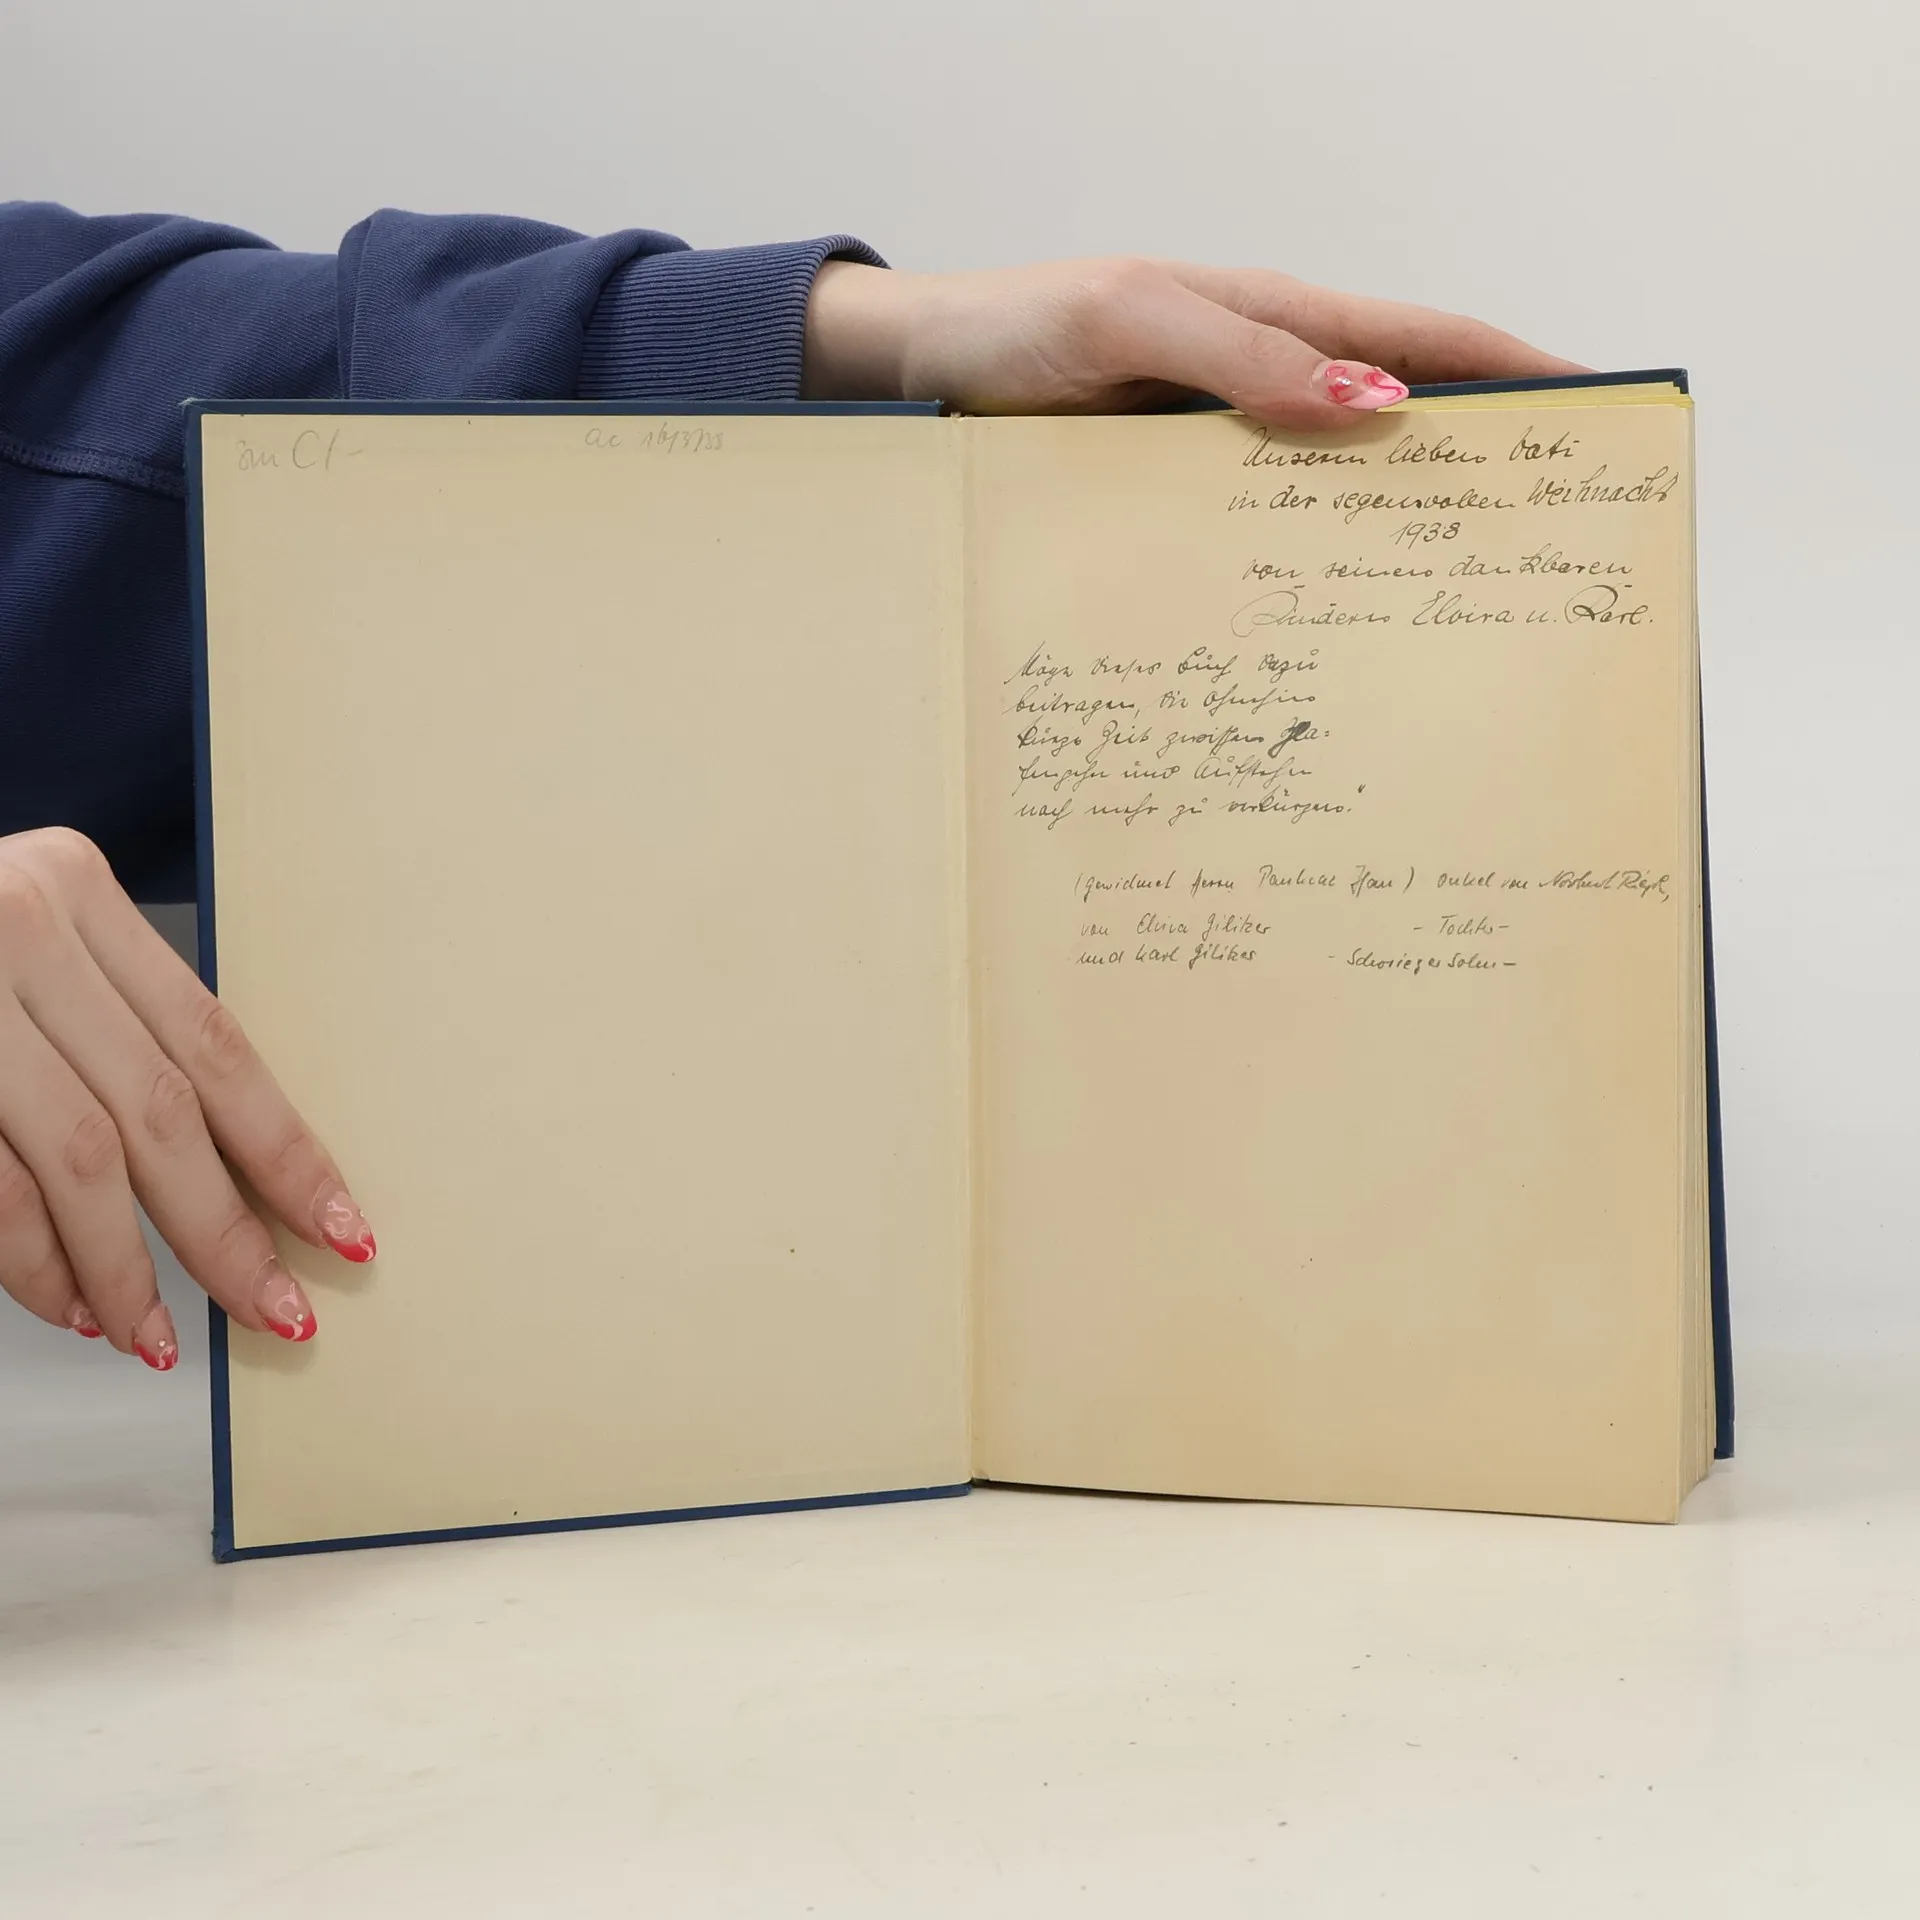 ac 16/3/38
Unserm lieben Vati
in der segensvollen Weihnacht
1938
von seinen dankbaren
Kindern Elvira u. Karl.
Möge dieses Buch dazu
beitragen, die ohnehin
kurze Zeit zwischen Schla=
fengehn und Aufstehn
noch mehr zu verkürzen."
(gewidmet Herrn Pankraz) Onkel von Norbert
von Elvira Gilitzer - Tochter -
und Karl Gilitzer - Schwiegersohn -